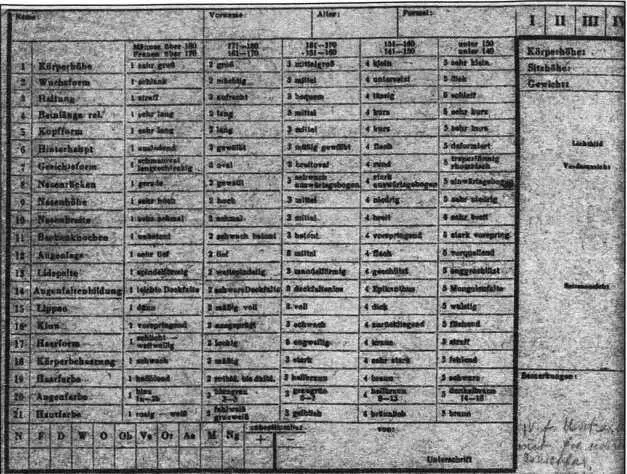 Name: Vorname: Alter: Formel: I II III IV
Männer über 180 171—180 161—170 151—160 unter 150
Frauen über 170 161—170 151—160 141—150 unter 140
1 Körperhöhe 1 sehr groß 2 groß 3 mittelgroß 4 klein 5 sehr klein
2 Wuchsform 1 schlank 2 mächtig 3 mittel 4 untersetzt 5 dick
3 Haltung 1 straff 2 aufrecht 3 bequem 4 lässig 5 schlaff
4 Beinlänge rel. 1 sehr lang 2 lang 3 mittel 4 kurz 5 sehr kurz
5 Kopfform 1 sehr lang 2 lang 3 mittel 4 kurz 5 sehr kurz
6 Hinterhaupt 1 ausladend 2 gewölbt 3 mäßig gewölbt 4 flach 5 deformiert
7 Gesichtsform 1 schmaloval 2 oval 3 breitoval 4 rund
8 Nasenrücken 1 gerade 2 gewellt 3 schwach auswärtsgebogen 4 stark auswärtsgebogen 5 einwärtsgebogen
9 Nasenhöhe 1 sehr hoch 2 hoch 3 mittel 4 niedrig 5 sehr niedrig
10 Nasenbreite 1 sehr schmal 2 schmal 3 mittel 4 breit 5 sehr breit
11 Backenknochen 1 unbetont 2 schwach betont 3 betont 4 vorspringend 5 stark vorspring.
12 Augenlage 1 sehr tief 2 tief 3 mittel 4 flach 5 vorquellend
13 Lidspalte 1 spindelförmig 2 weitspindelig 3 mandelförmig 4 geschlitzt 5 enggeschlitzt
14 Augenfaltenbildung 1 leichte Deckfalte 2 schwere Deckfalte 3 deckfaltenlos 4 Epikanthus 5 Mongolenfalte
15 Lippen 1 dünn 2 mäßig voll 3 voll 4 dick 5 wulstig
16 Kinn 1 vorspringend 2 ausgeprägt 3 schwach 4 zurückliegend 5 fliehend
17 Haarform 1 schlicht weitwellig 2 lockig 3 engwellig 4 kraus 5 straff
18 Körperbehaarung 1 schwach 2 mäßig 3 stark 4 sehr stark 5 fehlend
19 Haarfarbe 1 hellblond 3 hellbraun 4 braun 5 schwarz
20 Augenfarbe 1 blau 4 hellbraun 5 dunkelbraun
21 Hautfarbe 1 rosig — weiß 3 gelblich 4 bräunlich 5 braun
N F D W O Ob Vs Or As M Ng + − von:
Unterschrift
Körperhöhe:
Sitzhöhe:
Gewicht:
Lichtbild
Vorderansicht
Seitenansicht
Bemerkungen: